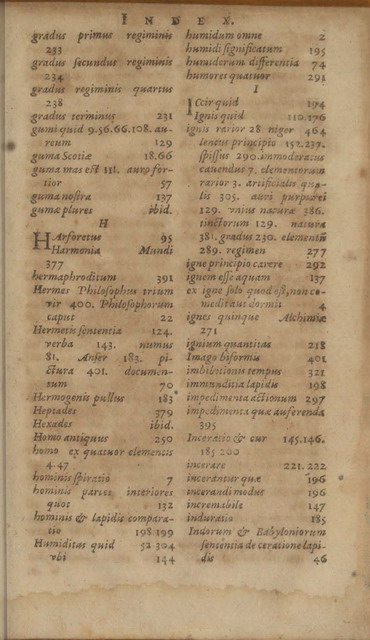 INDEX.
gradus primus regiminis
233
gradus secundus regiminis
234
gradus regiminis quartus
238
gradus terminus 231
gumi quid 9.56.66.108. au-
reum 129
guma Scotiæ 18.66
guma mas est 111. auro for-
tior 57
guma nostra 137
gumæ plures ibid.
H
HArforetus 95
Harmonia Mundi
377
hermaphroditum 391
Hermes Philosophus trium
vir 400. Philosophorum
caput 22
Hermetis sententia 124.
verba 143. numus
81. Anser 183. pi-
ctura 401. documen-
tum 70
Hermogenis pullus 183
Heptades 379
Hexades ibid.
Homo antiquus 250
homo ex quatuor elementis
4.47
hominis spiratio 7
hominis partes interiores
quot 132
hominis & lapidis compara-
tio 198.199
Humiditas quid 52 304
vbi 144
humidum omne 2
humidi significatum 195
humidorum differentia 74
humores quatuor 291
I
ICcir quid 194
Ignis quid 110.176
ignis rarior 28. niger 464
lentus principio 152.237.
spissus 290. immoderatus
cauendus 7. elementorum
rarior 3. artificialis qua-
lis 305. auri purpurei
129. vnius naturæ 386.
tincturem 129. natura
381. gradus 230. elementũ
289. regimen 277
igne principio carere 292
ignem esse aquam 137
ex igne solo quod est, non co-
medit aut dormit 4
ignes quinque Alchimiæ
271
ignium quantitas 218
Imago biformis 401
imbibitionis tempus 321
immunditia lapidis 198
impedimenta actionum 297
impedimenta quæ auferenda
395
Inceratio & cur 145.146.
185 200
incerare 221.222
incerantur quæ 196
incerandi modus 196
incremabile 147
induratio 185
Indorum & Babyloniorum
sententia de ceratione lapi-
dis 46